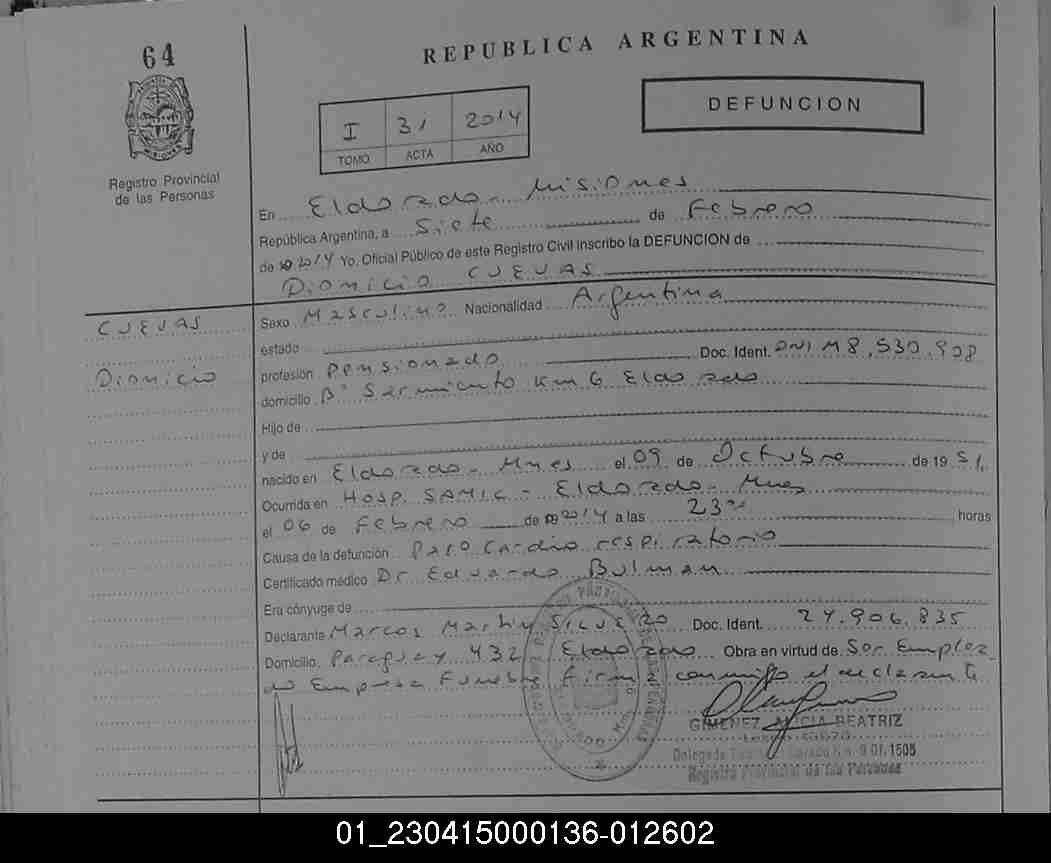 64
REPUBLICA ARGENTINA
I 31 2014
TOMO ACTA AÑO
DEFUNCION
Registro Provincial
de las Personas
En Eldorado - Misiones
República Argentina, a Siete de Febrero
de 2014 Yo, Oficial Público de este Registro Civil inscribo la DEFUNCION de
Dionicio CUEVAS
CUEVAS
Dionicio
Sexo Masculino Nacionalidad Argentina
estado
profesión Pensionado Doc. Ident. DNI M8,530,908
domicilio Bº Sarmiento Km 6 Eldorado
Hijo de
y de
nacido en Eldorado - Mnes el 09 de Octubre de 1951
Ocurrida en Hosp. SAMIC - Eldorado - Mnes
el 06 de Febrero de 2014 a las 23 horas
Causa de la defunción Paro Cardio respiratorio
Certificado médico Dr. Eduardo Bulman
Era cónyuge de
Declarante Marcos Martin Doc. Ident. 24.906.835
Domicilio Paraguay 432 Eldorado Obra en virtud de Ser Emplea
do Empresa Funebre firma conmigo el declarante
GIMENEZ ALICIA BEATRIZ
Registro Provincial de las Personas
01_230415000136-012602